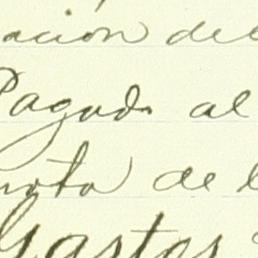 ación del
Pagado al
nota de l
Gastos